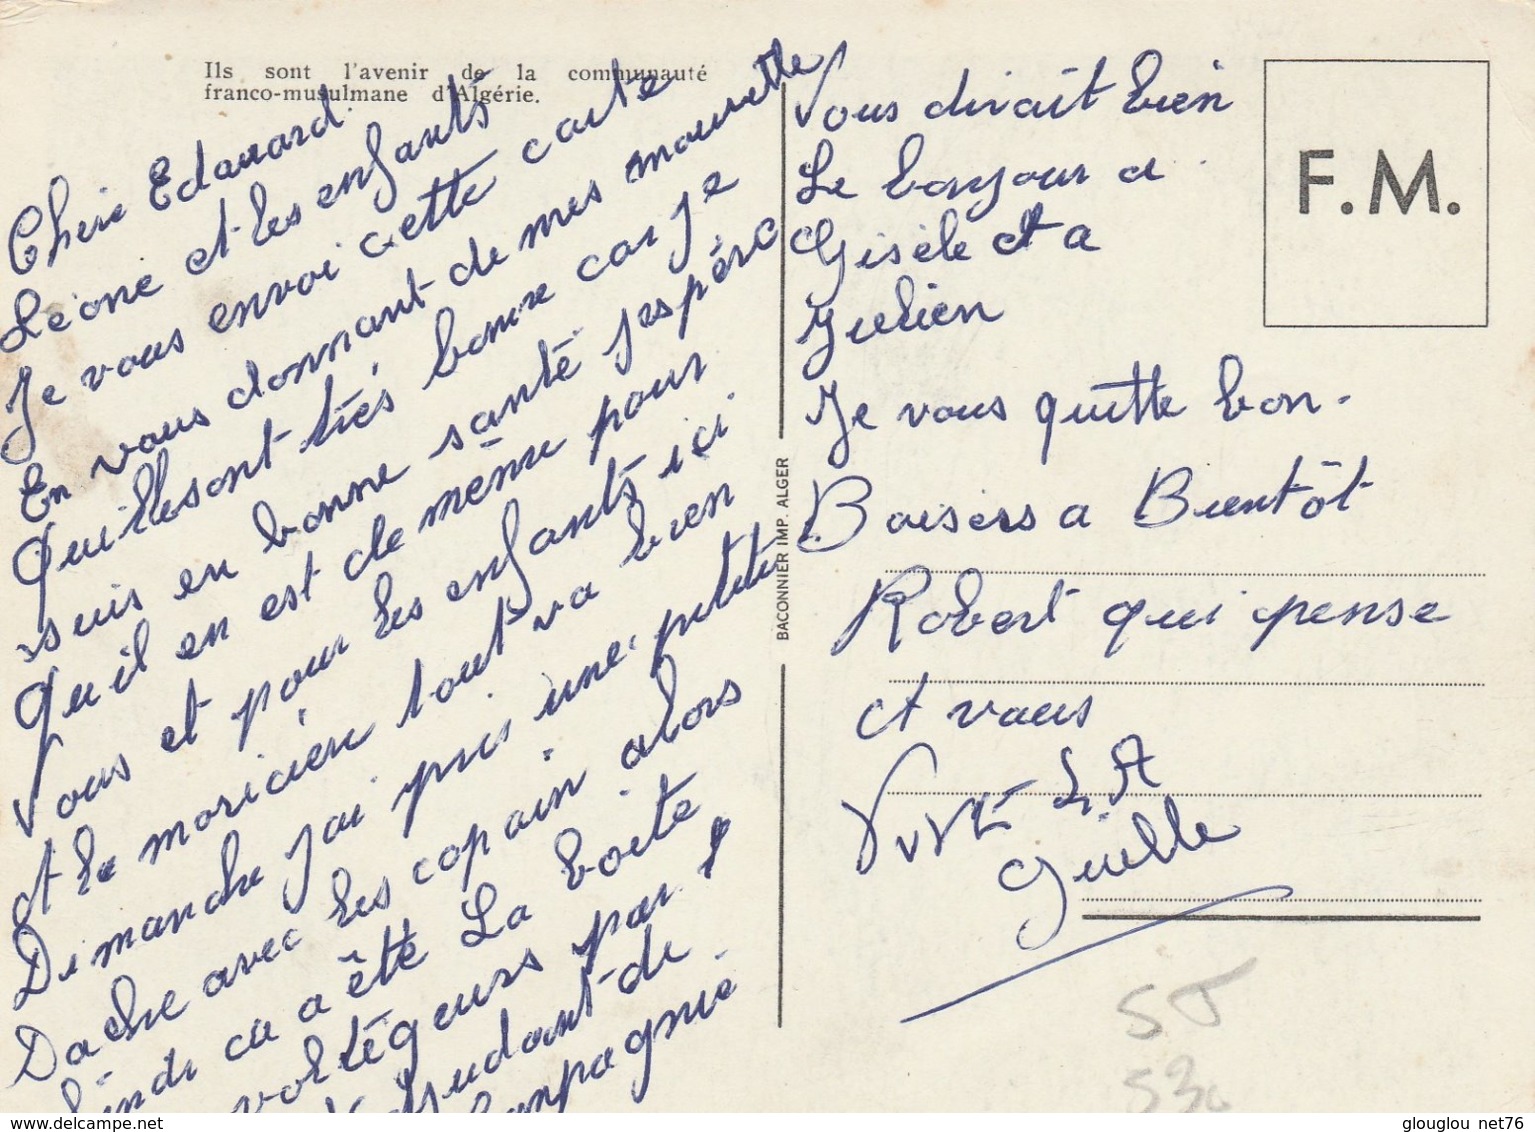 Ils sont l'avenir de la communauté
franco-musulmane d'Algérie.
Chere Edouard
Léone et les enfants
Je vous envoi cette carte
En vous donnant de mes nouvelle
Quillesont trés bonne car je
suis en bonne santé jespére
Qu il en est de même pour
Vous et pour les enfants ici
et le moricien tout va bien
Dimanche j ai pris une petite
Dache avec les copain alors
Lundi ca a été La boite
voltégeurs par
adjudant de
compagnie
Vous dirait bien
Le bonjour a
Gisèle et a
Julien
Je vous quitte bon.
Baisers a Bientôt
Robert qui pense
et vous
Vive LA
Quille
F.M.
BACONNIER IMP. ALGER
glouglou net76